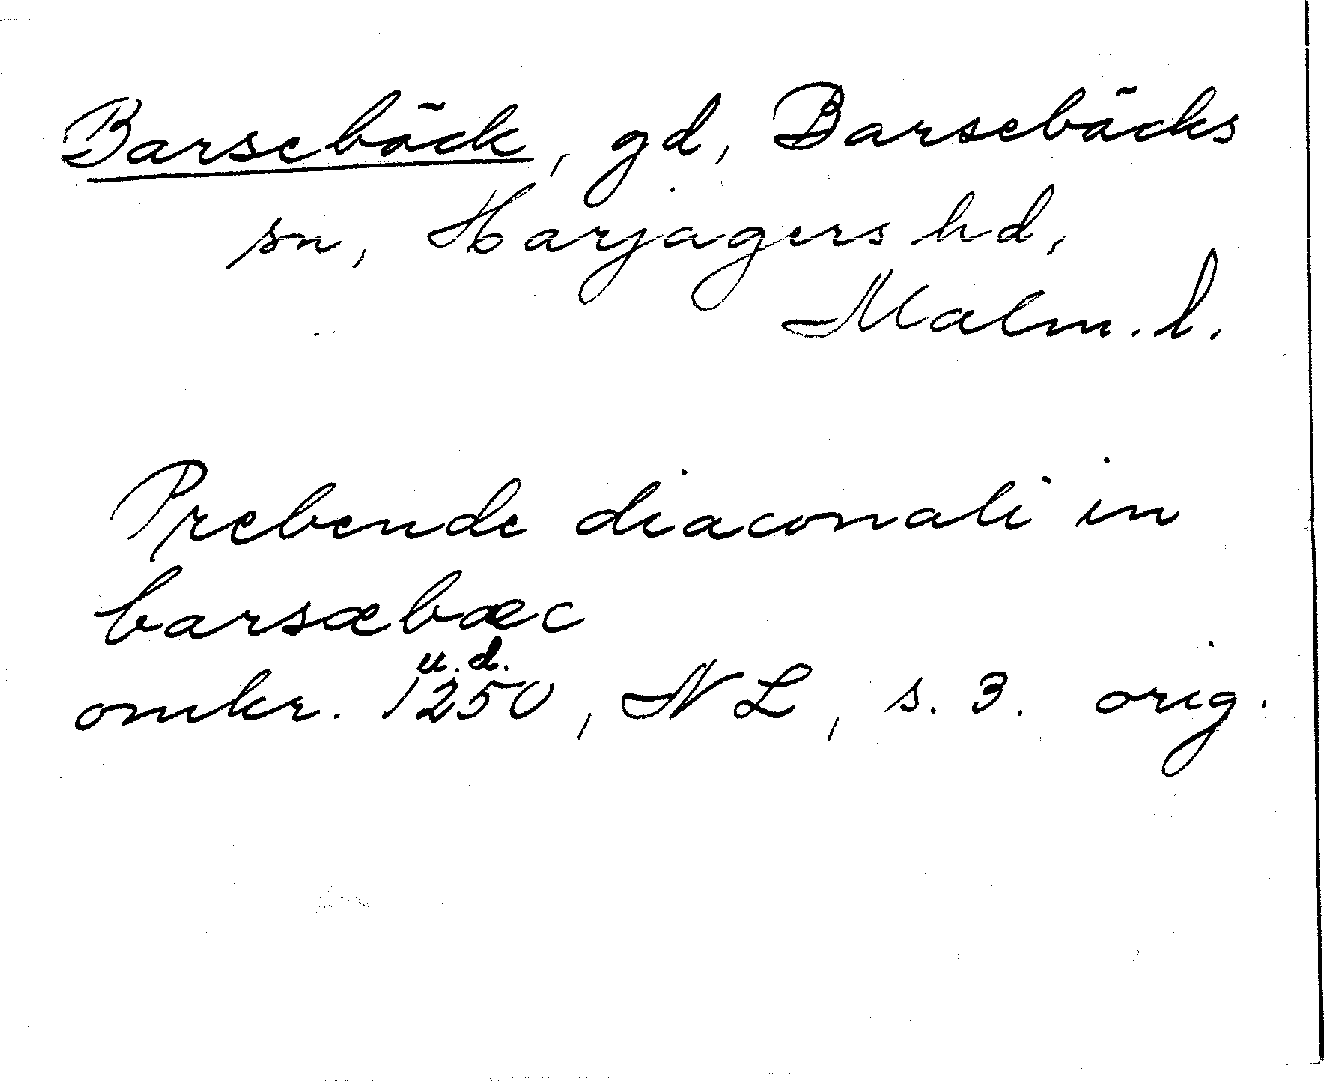 Barsebäck, gd, Barsebäcks
sn, Harjagers hd,
Malm. l.
Prebende diaconali in
barsæbæc
u. d.
omkr. 1250, NL, s. 3. orig.